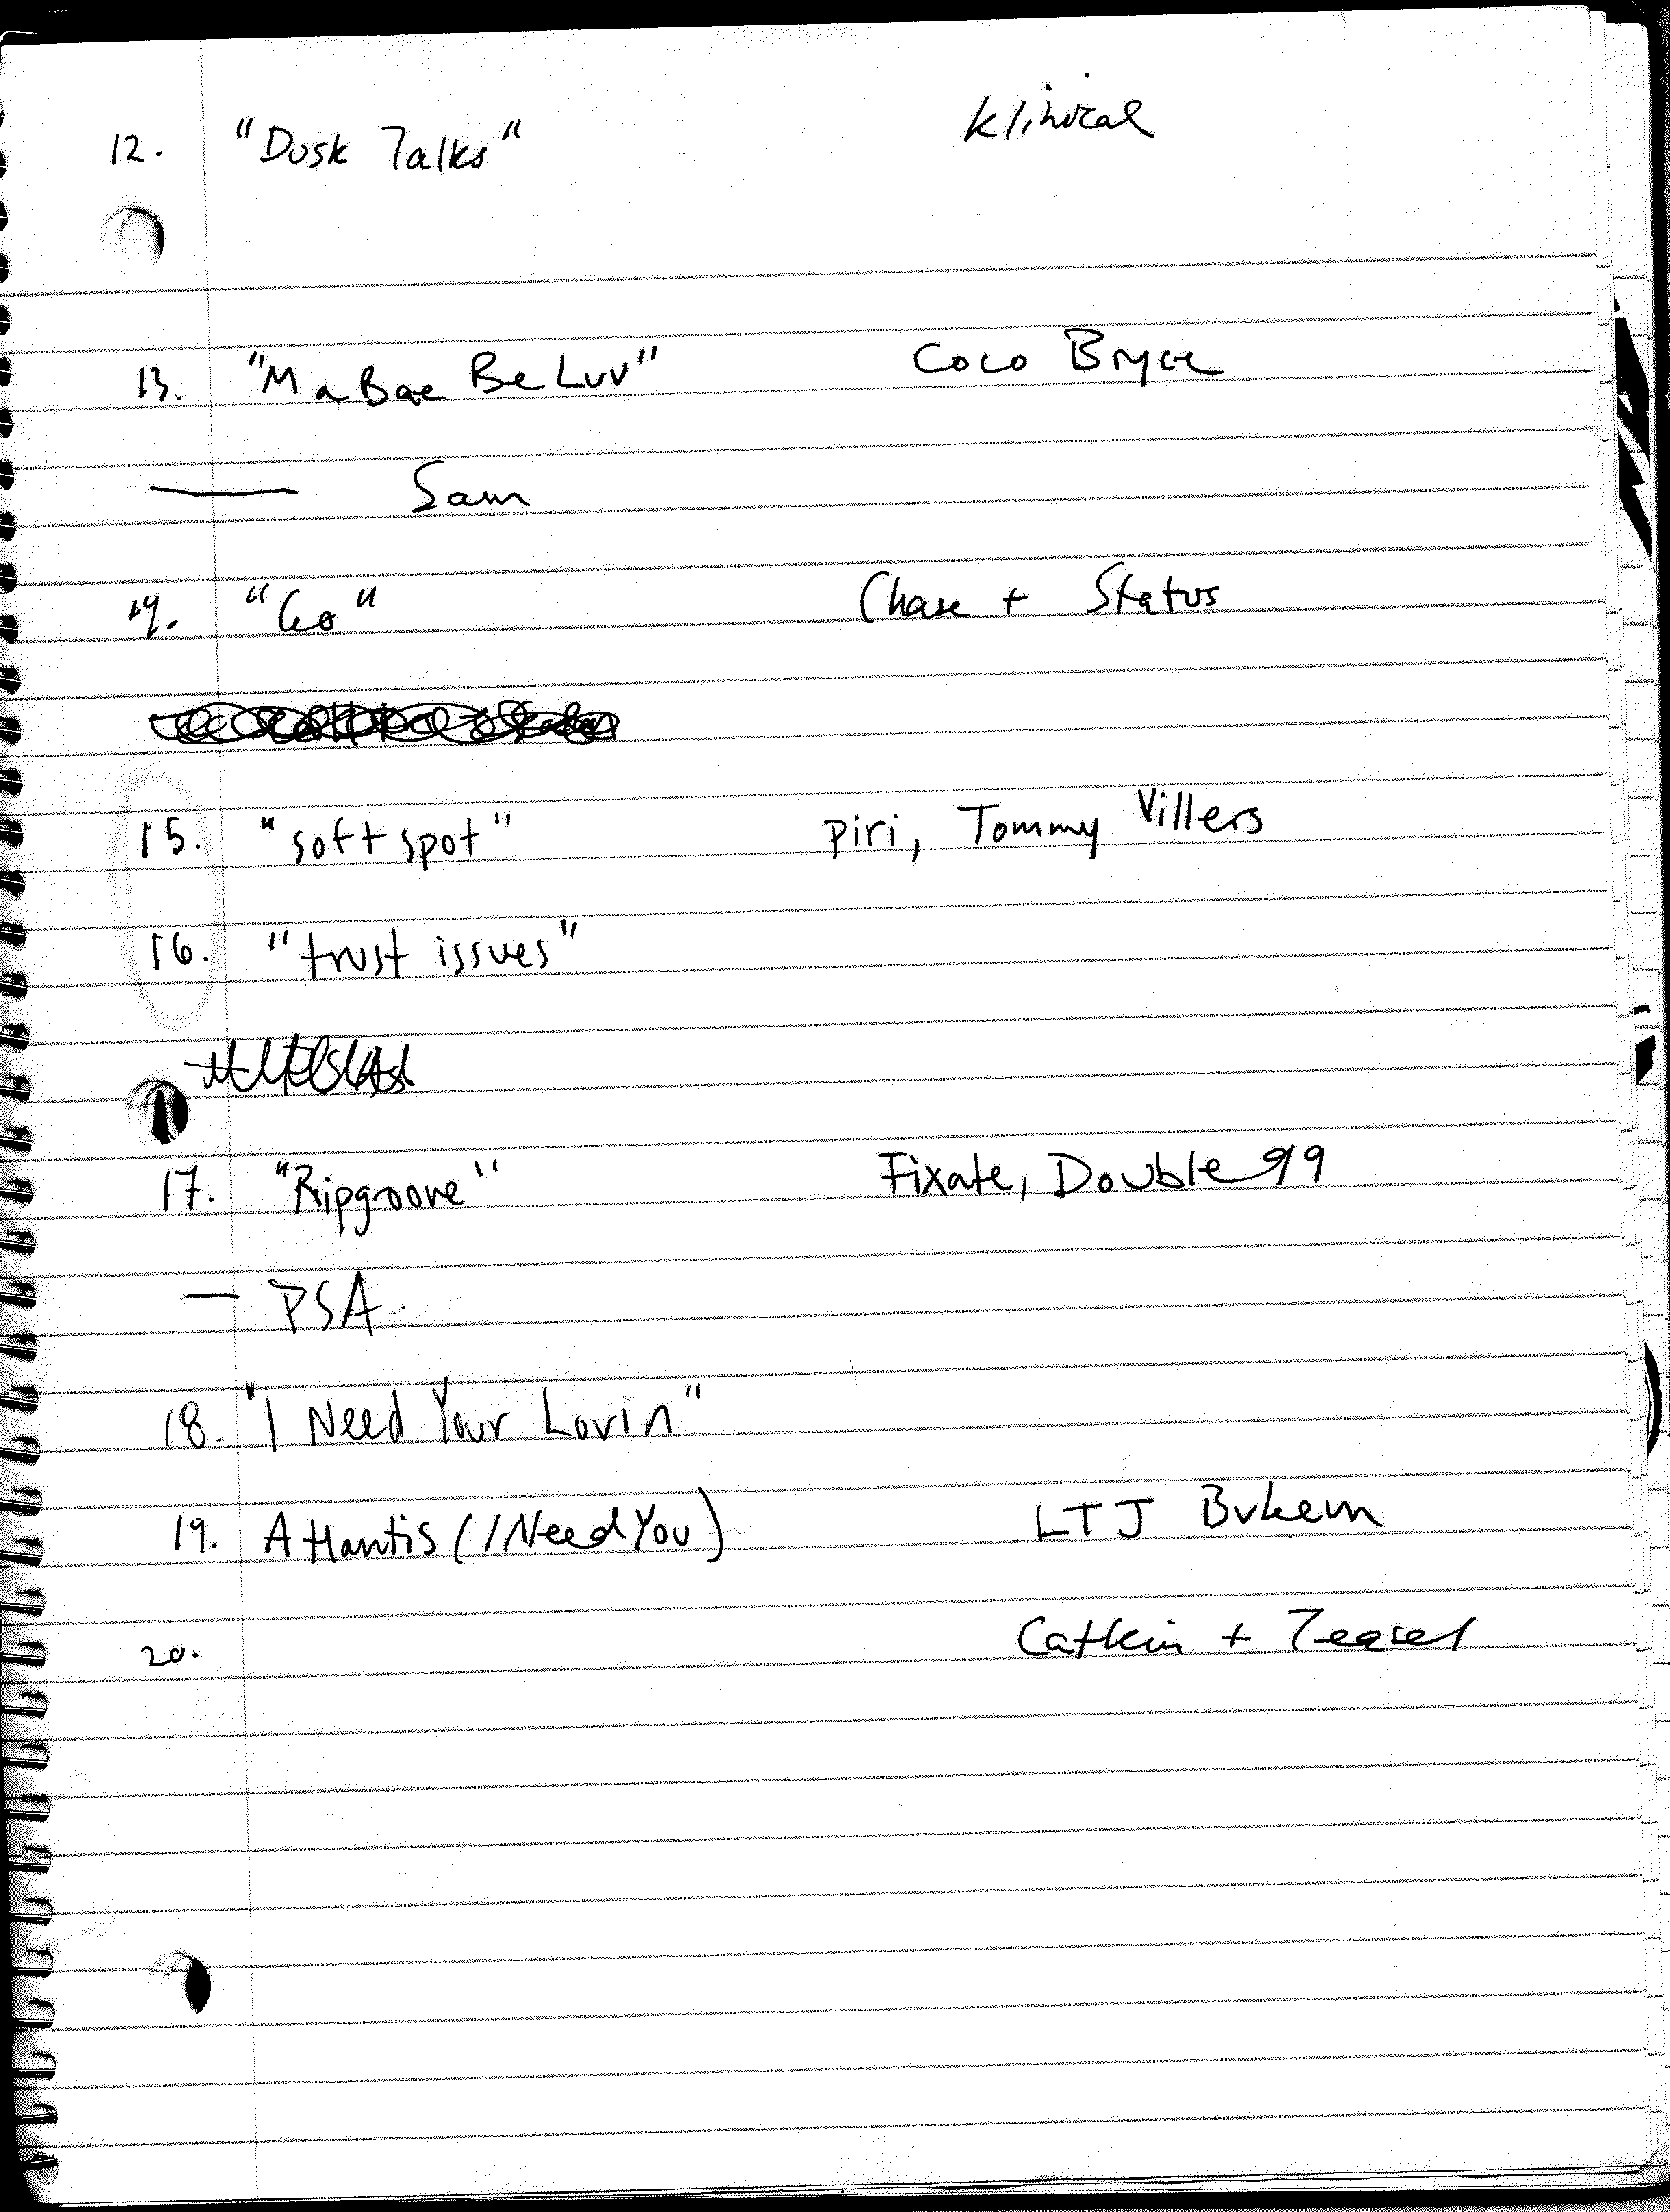 12. "Dusk Talks" Klinical
13. "Ma Bae Be Luv" Coco Bryce
— Sam
14. "Go" Chase + Status
15. "soft spot" piri, Tommy Villers
16. "trust issues"
17. "Ripgroove" Fixate, Double 99
— PSA
18. "I Need Your Lovin"
19. Atlantis (I Need You) LTJ Bukem
20. Catkin + Teasel